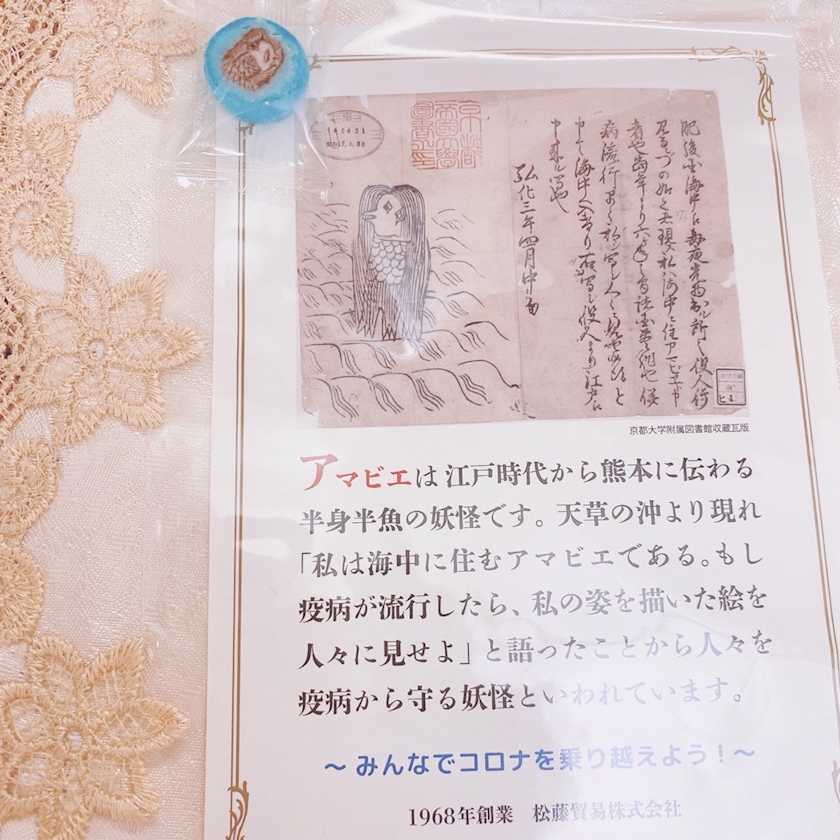 肥後国海中江毎夜光物出ル所之役人行
見るニづの如く者現ス私ハ海中ニ住アマビヱト申
者也當年より六ヶ年之間諸国豊作也併
病流行早々私ヲ写シ人々ニ見セ候得と
申て海中へ入けり右写シ役人より江戸江
申来ル写也
弘化三年四月中旬
京都大学附属図書館収蔵瓦版
アマビエは江戸時代から熊本に伝わる
半身半魚の妖怪です。天草の沖より現れ
「私は海中に住むアマビエである。もし
疫病が流行したら、私の姿を描いた絵を
人々に見せよ」と語ったことから人々を
疫病から守る妖怪といわれています。
～みんなでコロナを乗り越えよう！～
1968年創業 松藤貿易株式会社